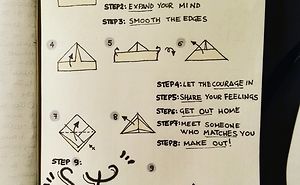 STEP2: EXPAND YOUR MIND
STEP3: SMOOTH THE EDGES
4
5
6
STEP4: LET THE COURAGE IN
STEP5: SHARE YOUR FEELINGS
STEP6: GET OUT HOME
STEP7: MEET SOMEONE
WHO MATCHES YOU
STEP8: MAKE OUT!
7
8
STEP 9:
9